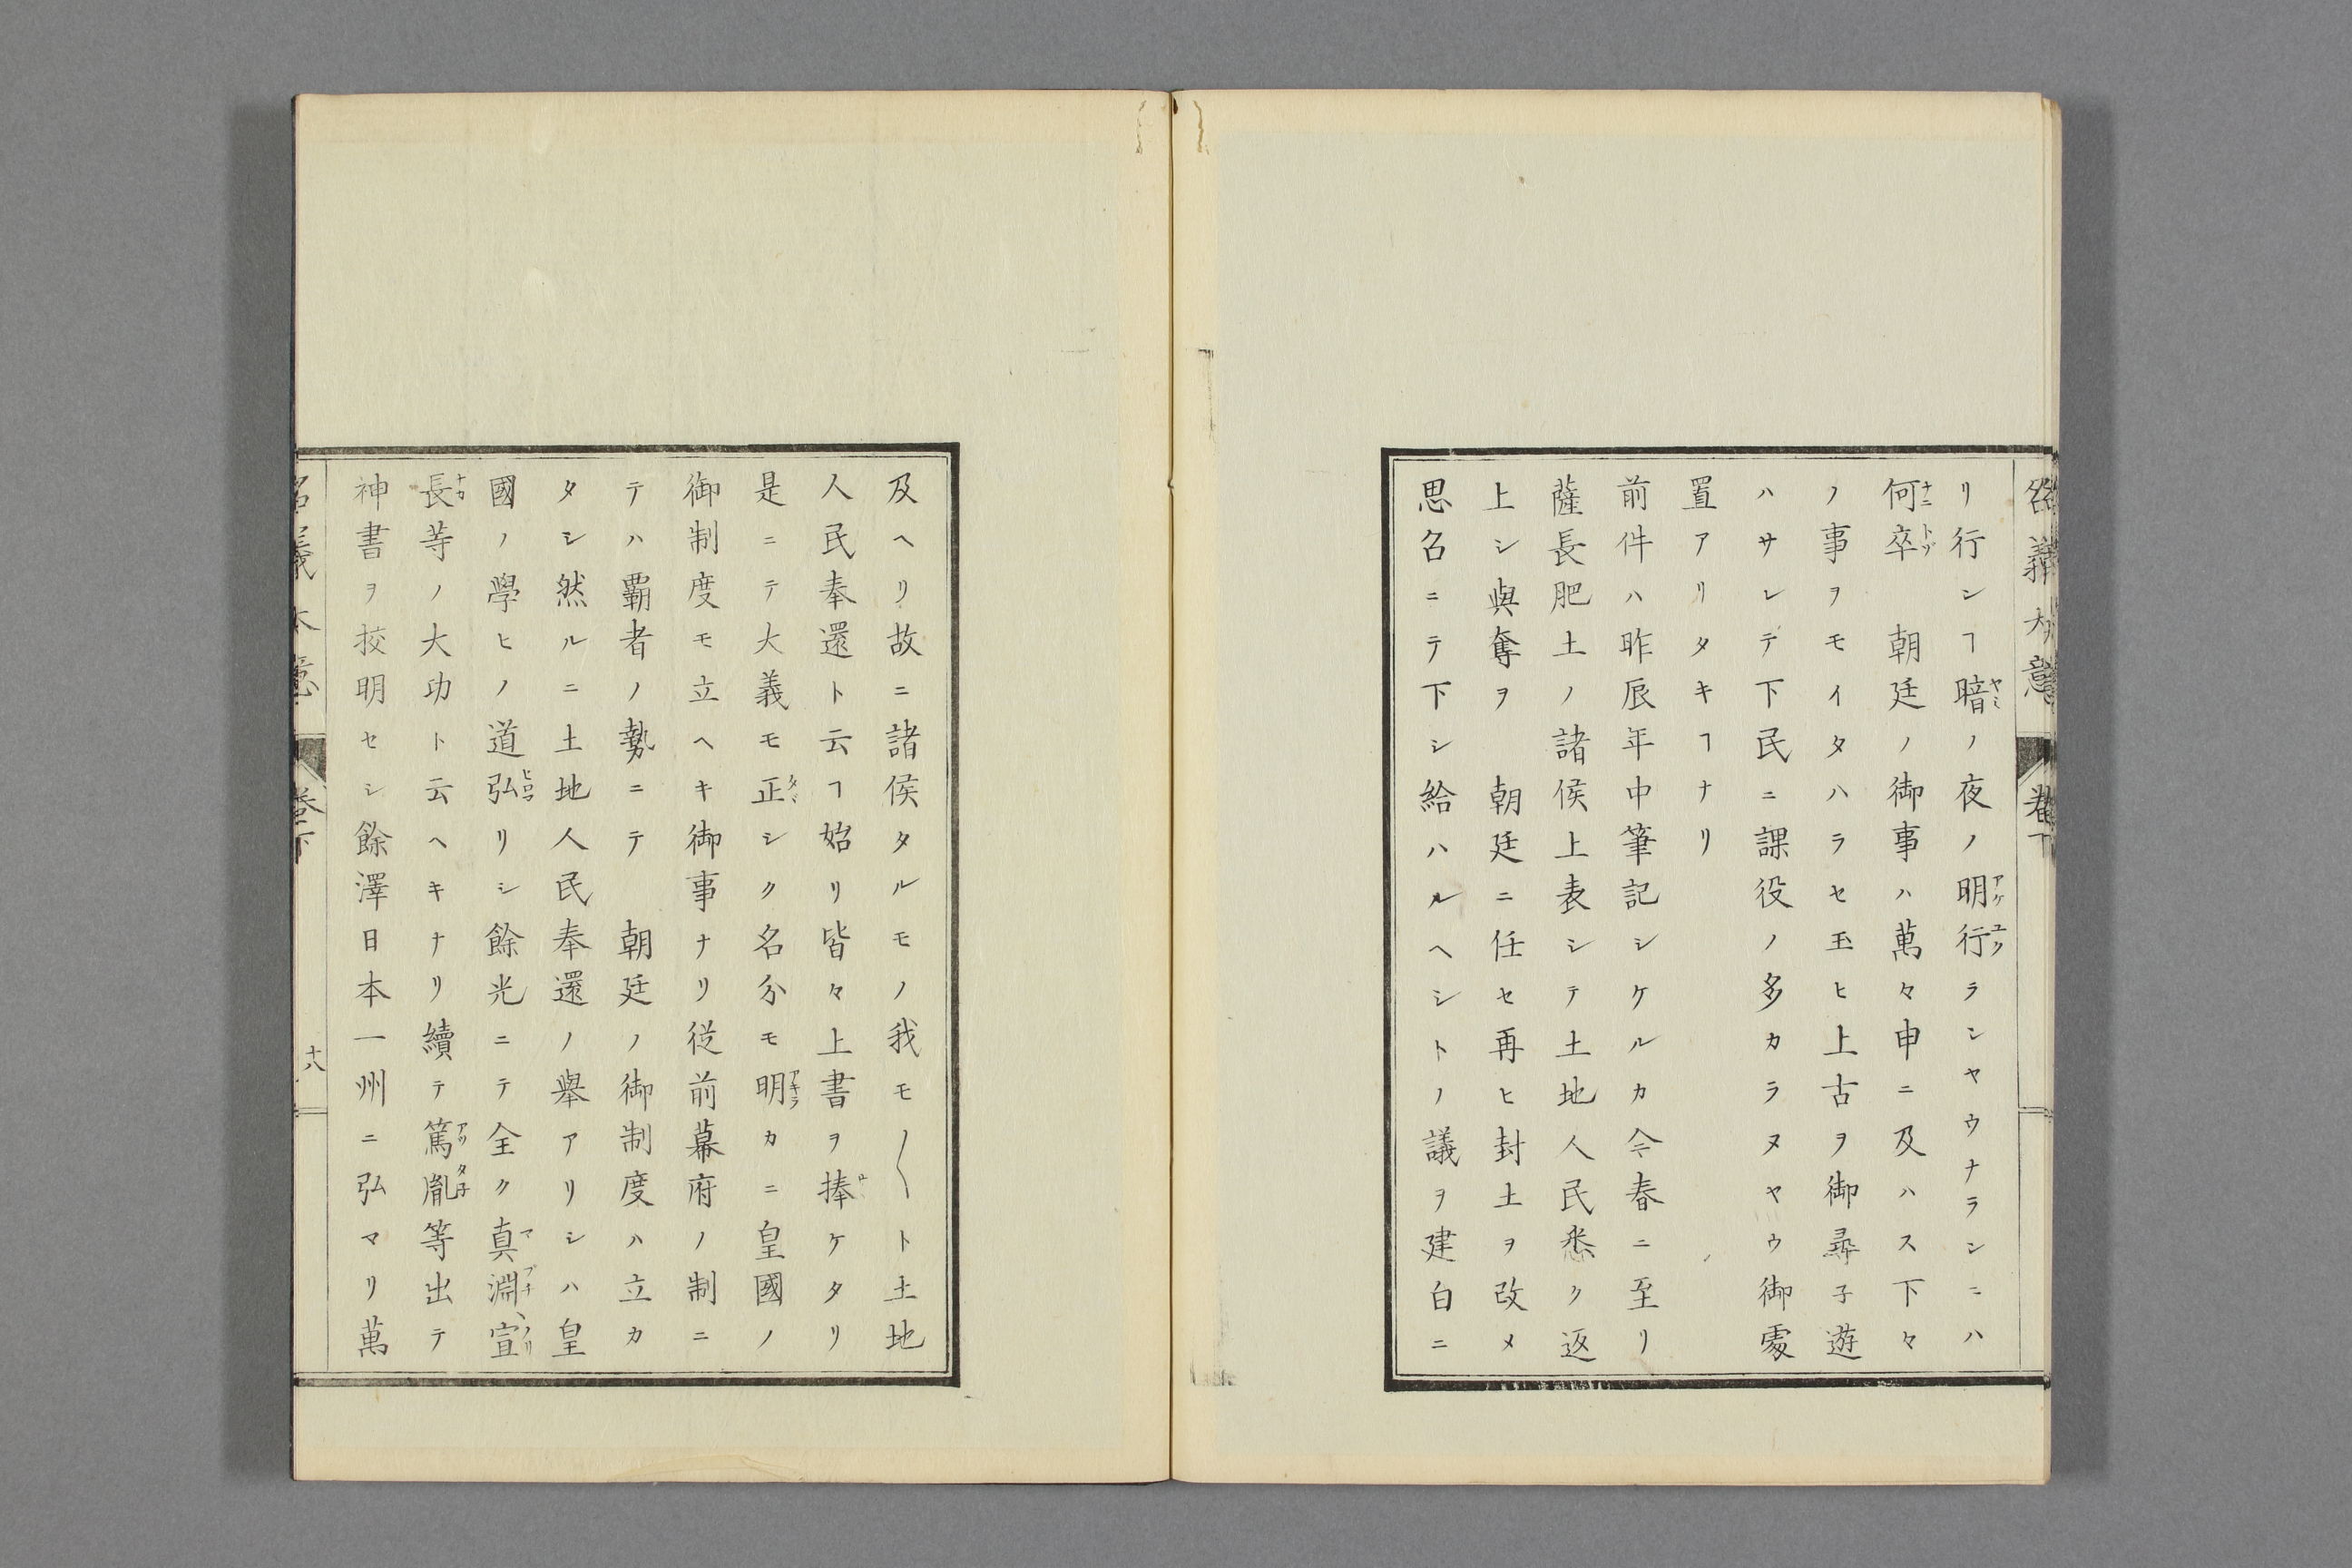 名義大意 卷下
リ行ンヿ暗ノ夜ノ明行ラシヤウナランニハ
何卒　朝廷ノ御事ハ萬々申ニ及ハス下々
ノ事ヲモイタハラセ玉ヒ上古ヲ御尋子遊
ハサレテ下民ニ課役ノ多カラヌヤウ御處
置アリタキヿナリ
前件ハ昨辰年中筆記シケルカ今春ニ至リ
薩長肥土ノ諸侯上表シテ土地人民悉ク返
上シ與奪ヲ　朝廷ニ任セ再ヒ封土ヲ改メ
思召ニテ下シ給ハルヘシトノ議ヲ建白ニ
及ヘリ故ニ諸侯タルモノ我モ〱ト土地
人民奉還ト云ヿ始リ皆々上書ヲ捧ケタリ
是ニテ大義モ正シク名分モ明カニ皇國ノ
御制度モ立ヘキ御事ナリ従前幕府ノ制ニ
テハ覇者ノ勢ニテ　朝廷ノ御制度ハ立カ
タシ然ルニ土地人民奉還ノ舉アリシハ皇
國ノ學ヒノ道弘リシ餘光ニテ全ク真淵、宣
長等ノ大功ト云ヘキナリ續テ篤胤等出テ
神書ヲ挍明セシ餘澤日本一州ニ弘マリ萬
名義大意 卷下 十八